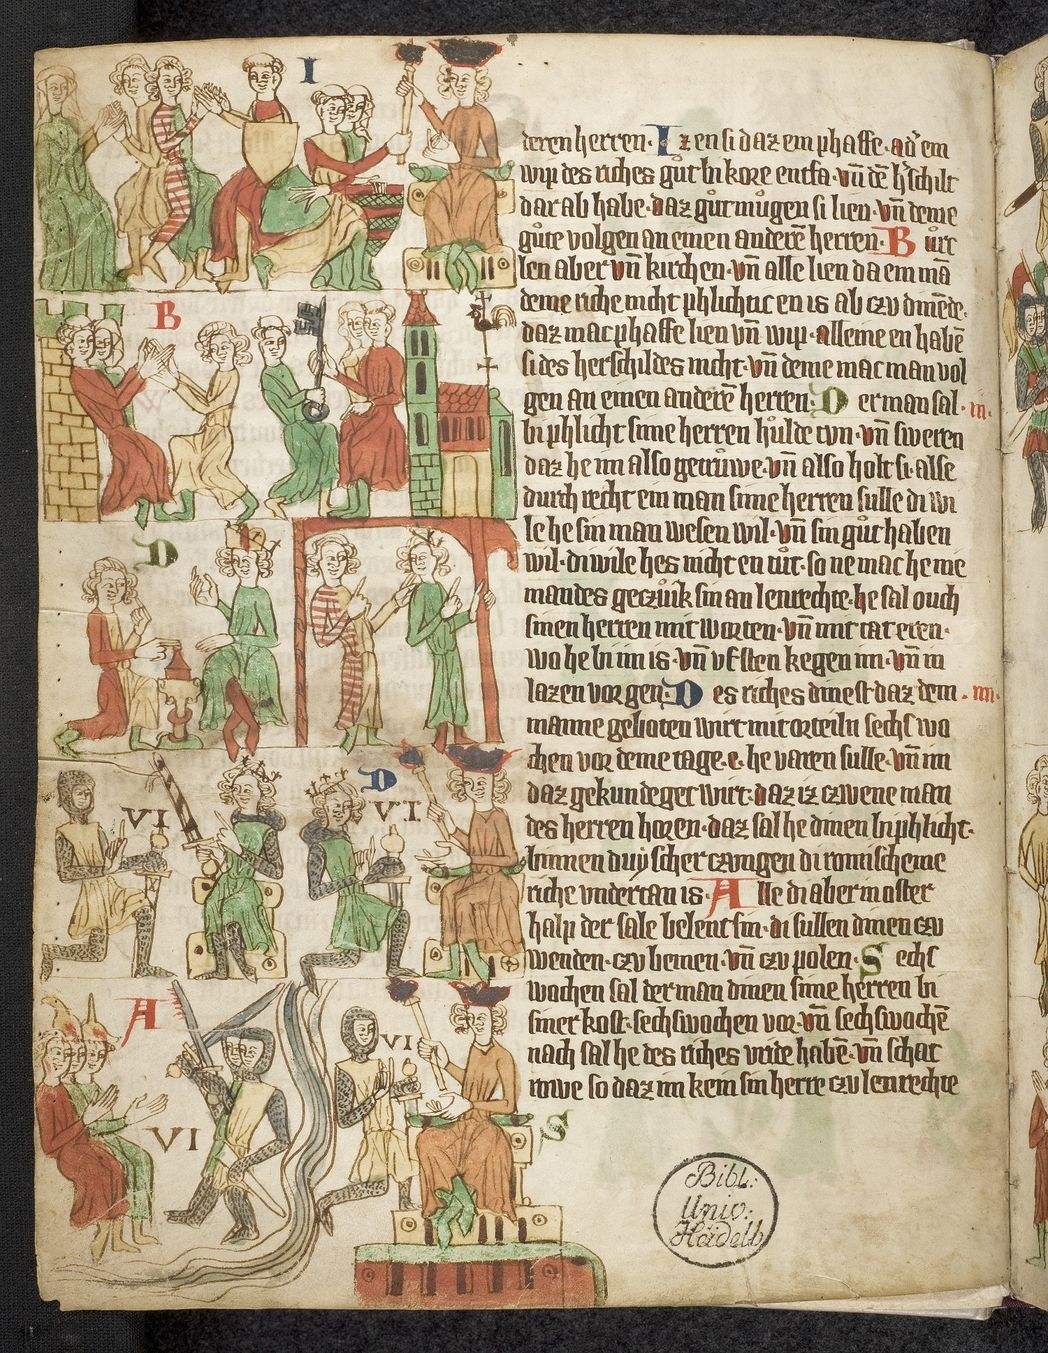 deren herren· Iz en si daz em phaffe· ad' em
wip des riches gůt bi kore entfa· vn̄ dē h'schilt
dar ab habe· daz gůt můgen si lien· vn̄ deme
gůte volgen an emen anderē herren· Burt
len aber vn̄ kirchen· vn̄ alle lien da em mā
deme riche nicht phlichtic en is ab czu dinēde·
daz mac phaffe lien vn̄ wip· alleine en habē
si des herschildes nicht· vn̄ deme mac man vol
gen an emen anderē herren· Der man sal· iii·
bi phlicht sime herren hůlde tvn· vn̄ sweren
daz he im also getrůwe· vn̄ also holt si· alse
durch recht em man sime herren sulle di wi
le he sin man wesen wil· vn̄ sin gůt haben
wil· di wile hes nicht en tůt· so ne mac he nie
mandes geczůk sin an lenrechte· he sal ouch
sinen herren mit worten· vn̄ mit tat eren·
wo he bi im is· vn̄ vf sten kegen im· vn̄ in
lazen vor gen· Des riches dinest daz dem· iiii·
manne geboten wirt mit orteiln sechs wo
chen vor deme tage· e· he varen sulle· vn̄ im
daz gekundeget wirt· daz iz czwene man
des herren horen· daz sal he dinen bi phlicht·
binnen duyscher czungen di romischeme
riche vndertan is· Alle di aber in oster
halp der sale belent sin· di sullen dinen czu
wenden· czu bemen· vn̄ czu polen· Sechs
wochen sal der man dinen sime herren bi
siner kost· sechs wochen vor· vn̄ sechs wochē
nach sal he des riches vride habē· vn̄ schat
rowe so daz im kein sin herre czu lenrechte
I
B
D
VI
D
VI
A
VI
VI
S
Bibl:
Univ:
Heidelb